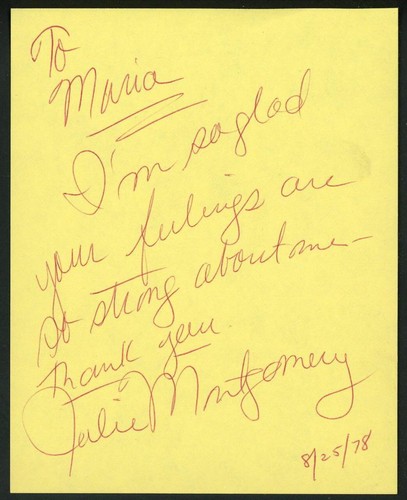 To
Maria
I'm so glad
your feelings are
so strong about me -
thank you.
Julie Montgomery
8/25/78